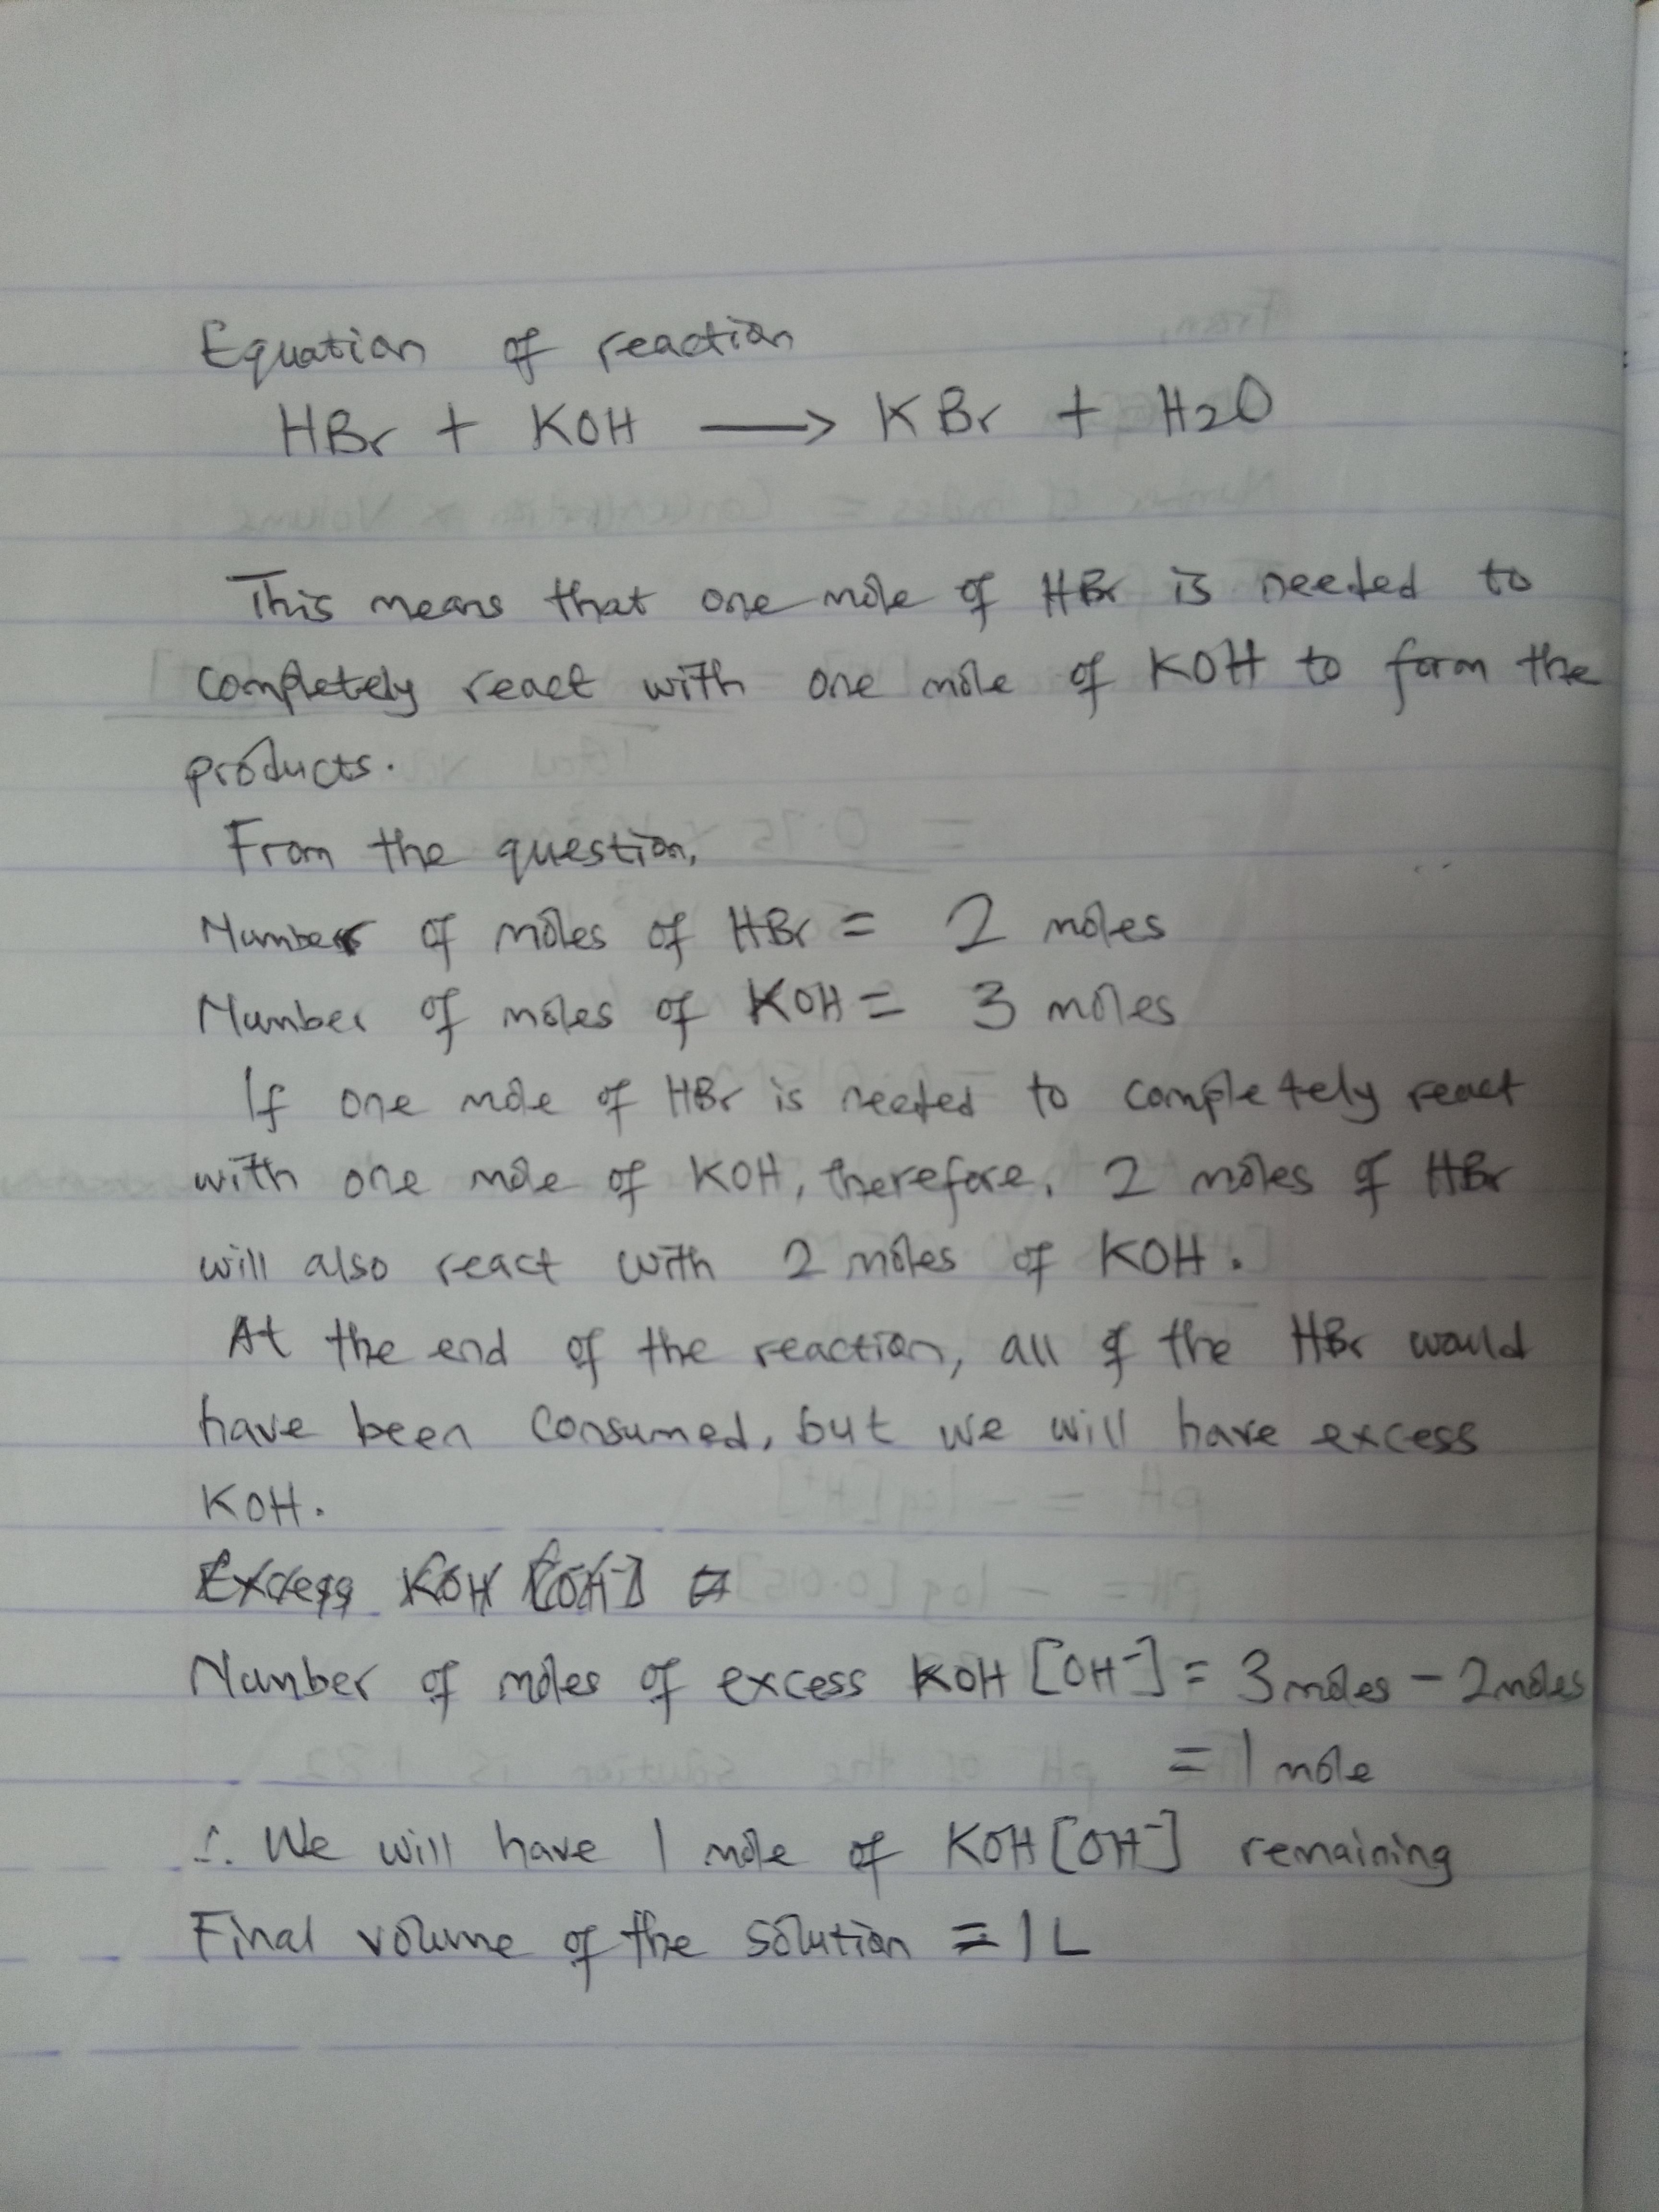 Equation of reaction
HBr + KOH ⟶ KBr + H2O
This means that one mole of HBr is needed to
completely react with one mole of KOH to form the
products.
From the question,
Number of moles of HBr = 2 moles
Number of moles of KOH = 3 moles
If one mole of HBr is needed to completely react
with one mole of KOH, therefore, 2 moles of HBr
will also react with 2 moles of KOH.
At the end of the reaction, all of the HBr would
have been consumed, but we will have excess
KOH.
Excess KOH [OH⁻] =
Number of moles of excess KOH [OH⁻] = 3 moles - 2 moles
= 1 mole
∴ We will have 1 mole of KOH [OH⁻] remaining
Final volume of the solution = 1 L